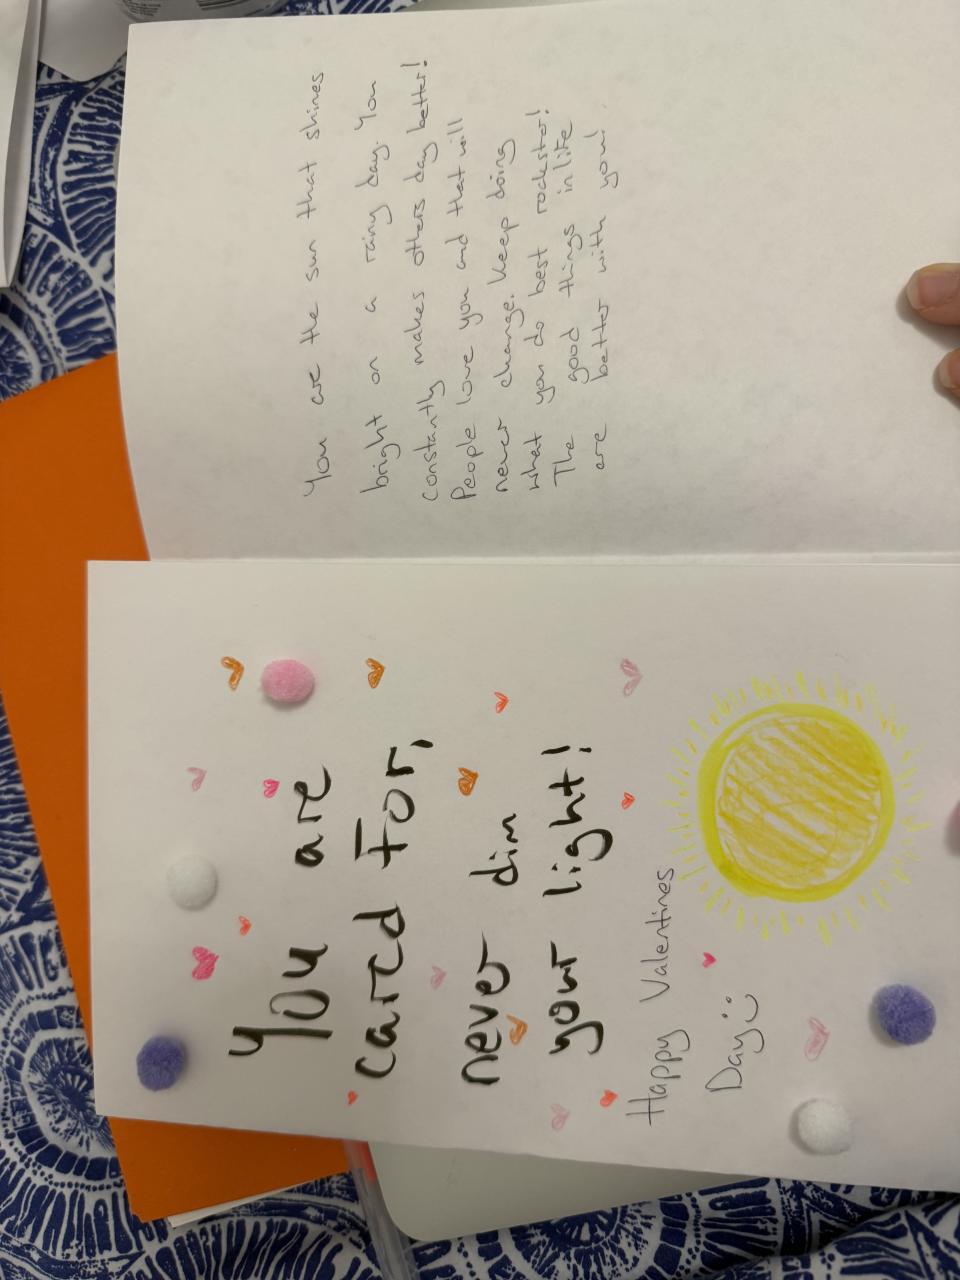 You are the sun that shines
bright on a rainy day. You
constantly makes others day better!
People love you and that will
never change. Keep doing
what you do best rockstar!
The good things in life
are better with you!
You are
cared for,
never dim
your light!
Happy Valentines
Day :)